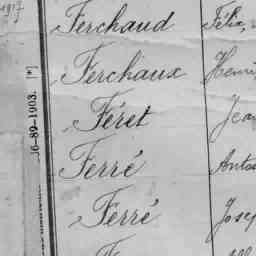 1917
Ferchaud Félix,
Ferchaux Henri
Féret Jean
Ferré Anto
Ferré Josep
16-89-1903. [*]